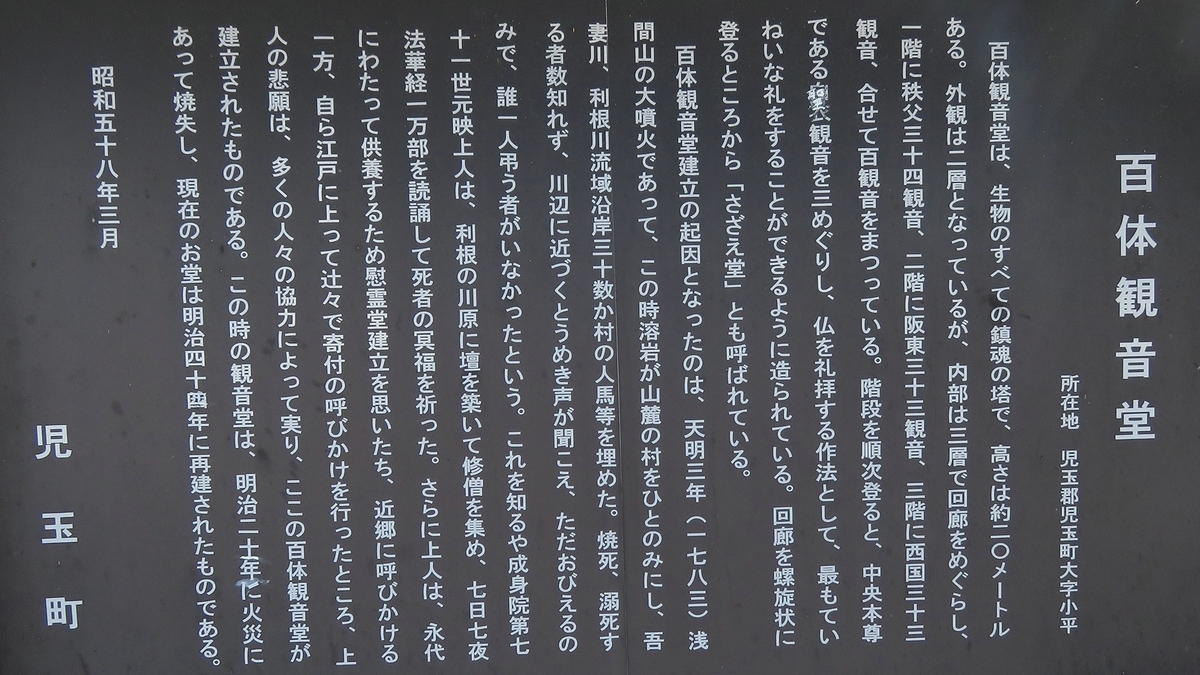 百体観音堂
所在地　児玉郡児玉町大字小平
百体観音堂は、生物のすべての鎮魂の塔で、高さは約二〇メートル
ある。外観は二層となっているが、内部は三層で回廊をめぐらし、
一階に秩父三十四観音、二階に阪東三十三観音、三階に西国三十三
観音、合せて百観音をまつっている。階段を順次登ると、中央本尊
である観音を三めぐりし、仏を礼拝する作法として、最もてい
ねいな礼をすることができるように造られている。回廊を螺旋状に
登るところから「さざえ堂」とも呼ばれている。
百体観音堂建立の起因となったのは、天明三年（一七八三）浅
間山の大噴火であって、この時溶岩が山麓の村をひとのみにし、吾
妻川、利根川流域沿岸三十数か村の人馬等を埋めた。焼死、溺死す
る者数知れず、川辺に近づくとうめき声が聞こえ、ただおびえるの
みで、誰一人弔う者がいなかったという。これを知るや成身院第七
十一世元映上人は、利根の川原に壇を築いて修僧を集め、七日七夜
法華経一万部を読誦して死者の冥福を祈った。さらに上人は、永代
にわたって供養するため慰霊堂建立を思いたち、近郷に呼びかける
一方、自ら江戸に上って辻々で寄付の呼びかけを行ったところ、上
人の悲願は、多くの人々の協力によって実り、ここの百体観音堂が
建立されたものである。この時の観音堂は、明治二十年に火災に
あって焼失し、現在のお堂は明治四十四年に再建されたものである。
昭和五十八年三月
児玉町